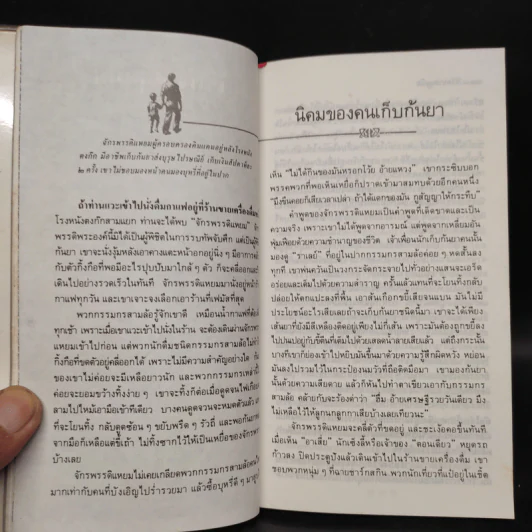 จักรพรรดิแหยมผู้ครอบครองดินแดนอยู่หลังโรงหนัง
คงกึก มีอาชีพเก็บกันยาส่งบุรุษไปรษณีย์ เก็บเงินสัปดาห์ละ
๒ ครั้ง เขาไม่ชอบมองหน้าคนมองบุหรี่ที่อยู่ในปาก
ถ้าท่านแวะเข้าไปนั่งดื่มกาแฟอยู่ที่ร้านขายเครื่องดื่ม
โรงหนังคงกึกสามแยก ท่านจะได้พบ "จักรพรรดิแหยม"
พรรดิพระองค์นี้มิได้เป็นผู้พิชิตในการรบทัพจับศึก แต่เป็นผู้
กันยา เขาจะนั่งงุ้มหลังเอาคางและหน้าอกอยู่นิ่ง ๆ มีอาการ
กับตัวกิ้งกือที่พอมีอะไรปุบปับมาใกล้ ๆ ตัว ก็จะคลี่ออกและ
เดินไปอย่างรวดเร็วในทันที จักรพรรดิแหยมมานั่งอยู่ที่
กาแฟทุกวัน และเขาเจาะจงเลือกเอาร้านที่เฟมัสที่สุด
พวกกรรมกรสามล้อรู้จักเขาดี เหมือนน้ำกาแฟที่ต้อง
ทุกเช้า เพราะเมื่อเขาแวะเข้าไปนั่งในร้าน จะต้องเดินผ่าน
แหยมเข้าไปก่อน แต่พวกนักดื่มชนิดกรรมกรสามล้อ
กิ้งกือที่ขดตัวอยู่คลี่ออกได้ เพราะไม่มีความสำคัญอย่างใด
ของเขาไม่ค่อยจะมีเหลือยาวนัก และพวกกรรมกรเหล่านี้
ค่อยจะยอมขว้างทิ้งง่าย ๆ เขาจะทิ้งก็ต่อเมื่อดูดจนไฟ
ลามไปไหม้เอามือเข้าทีเดียว บางคนดูดจวนจะหมดตัวแล้ว
ที่จะโยนทิ้ง กลับดูดซ้อน ๆ ขยับพรืด ๆ รัวถี่ และพอก้น
จากมือก็เหลือแต่ขี้เถ้า ไม่ทิ้งซากไว้ให้เป็นเหยื่อของจักร
บ้างเลย
จักรพรรดิแหยมไม่เคยเกลียดพวกกรรมกรสามล้อ
มากเท่ากับคนที่บังเอิญไปร่ำรวยมา แล้วซื้อบุหรี่ดี ๆ
นิคมของคนเก็บกันยา
เห็น "ไม่ได้กินของมันหรอกโว้ย อ้ายแหวง" เขากระซิบบอก
พรรคพวกที่พอเห็นเหยื่อก็ปราดเข้ามาสมทบด้วยอีกคนหนึ่ง
"นึงคือคอยก็เสียเวลาเปล่า ถ้าได้แดกของมัน กูสัญญาให้กระทืบ"
คำพูดของจักรพรรดิแหยมเป็นคำพูดที่เด็ดขาดและเป็น
ความจริง เพราะเขาไม่ได้พูดจากอารมณ์ แต่พูดจากเหลี่ยมอัน
พุ่มเฟือยด้วยความชำนาญของชีวิต เจ้าเพื่อนนักเก็บกันยาคนนั้น
มองดู "ราเลย์" ที่อยู่ในปากกรรมกรสามล้อค่อย ๆ หดสั้นลง
ทุกที เขาพ่นควันเป็นวงกระจัดกระจายไปทั่วอย่างแสนจะเอร็ด
อร่อยและเต็มไปด้วยความสำราญ ครั้นแล้วแทนที่จะโยนทิ้งกลับ
ปล่อยให้ตกแปะลงที่พื้น เอาส้นเกือกขยี้เสียจนแบน มันไม่มี
ประโยชน์อะไรเสียเลยถ้าจะเก็บกันยาชนิดนี้มา เขาจะได้เพียง
เส้นยาที่ยังมีสีเหลืองติดอยู่เพียงไม่กี่เส้น เพราะมันต้องถูกขยี้ลง
ไปปนเปอยู่กับขี้ดินที่เต็มไปด้วยเสลดน้ำลายเสียแล้ว แต่ถึงกระนั้น
บางทีเขาก็ย่องเข้าไปหยิบมันขึ้นมาด้วยความรู้สึกผิดหวัง หย่อน
มันลงไปรวมไว้ในกระป๋องนมวัวที่ถือติดมือมา เขามองกันยา
นั้นด้วยความเสียดาย แล้วก็หันไปทำตาเขียวเอากับกรรมกร
สามล้อ คล้ายกับจะร้องด่าว่า "ฮึ่ม อ้ายเศรษฐีรวยวันเดียว มึง
ไม่เหลือไว้ให้ลูกนกลูกกาเสียบ้างเลยเทียวนะ"
จักรพรรดิแหยมจะคลี่ตัวที่ขดอยู่ และชะเง้อคอขึ้นทันที
เมื่อเห็น "อาเสี่ย" นักเชิงลี้หรือเจ้าของ "คอนเดียว" หยุดรถ
ก้าวลง ปิดประตูปังแล้วเดินเข้าไปในร้านขายเครื่องดื่ม เขา
ชอบพวกหนุ่ม ๆ ที่ฉายชาร์กสกิน พวกนักเที่ยวที่แป้อยู่ในเชิ้ต